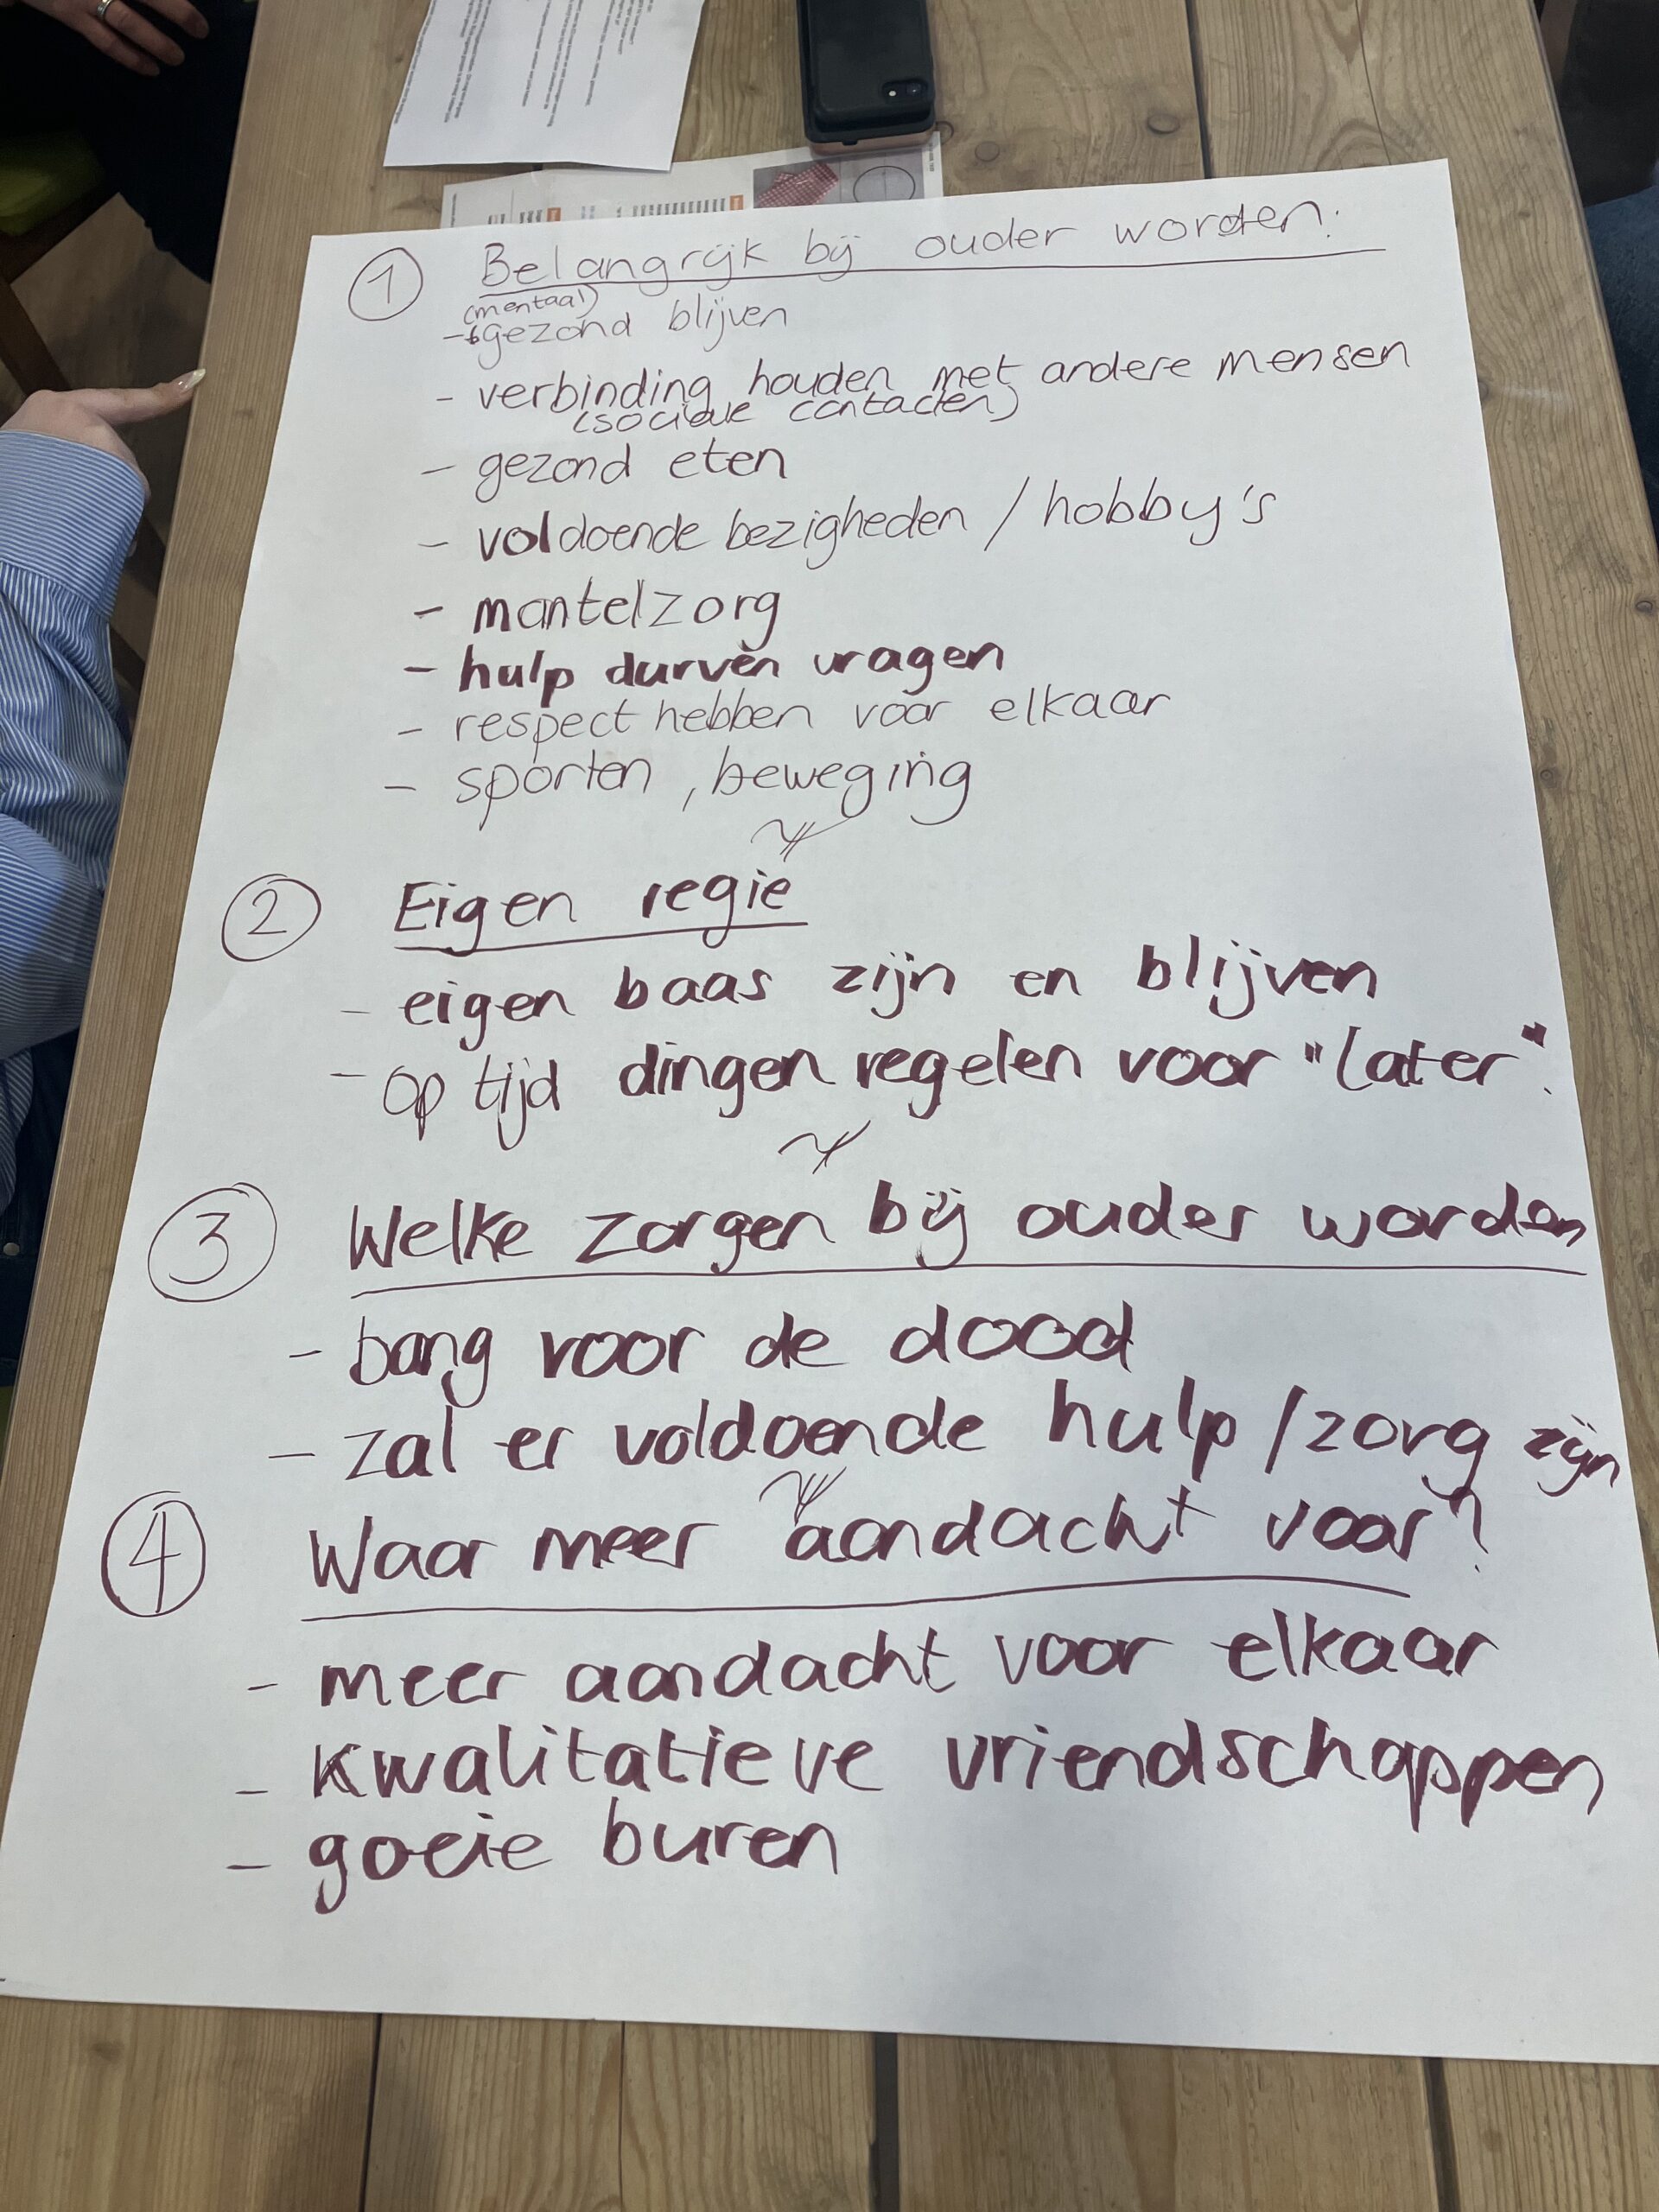 ① Belangrijk bij ouder worden:
(mentaal)
- gezond blijven
- verbinding houden met andere mensen
(sociale contacten)
- gezond eten
- voldoende bezigheden / hobby's
- mantelzorg
- hulp durven vragen
- respect hebben voor elkaar
- sporten, beweging
② Eigen regie
- eigen baas zijn en blijven
- op tijd dingen regelen voor "later".
③ Welke zorgen bij ouder worden
- bang voor de dood
- zal er voldoende hulp / zorg zijn
④ Waar meer aandacht voor?
- meer aandacht voor elkaar
- kwalitatieve vriendschappen
- goeie buren